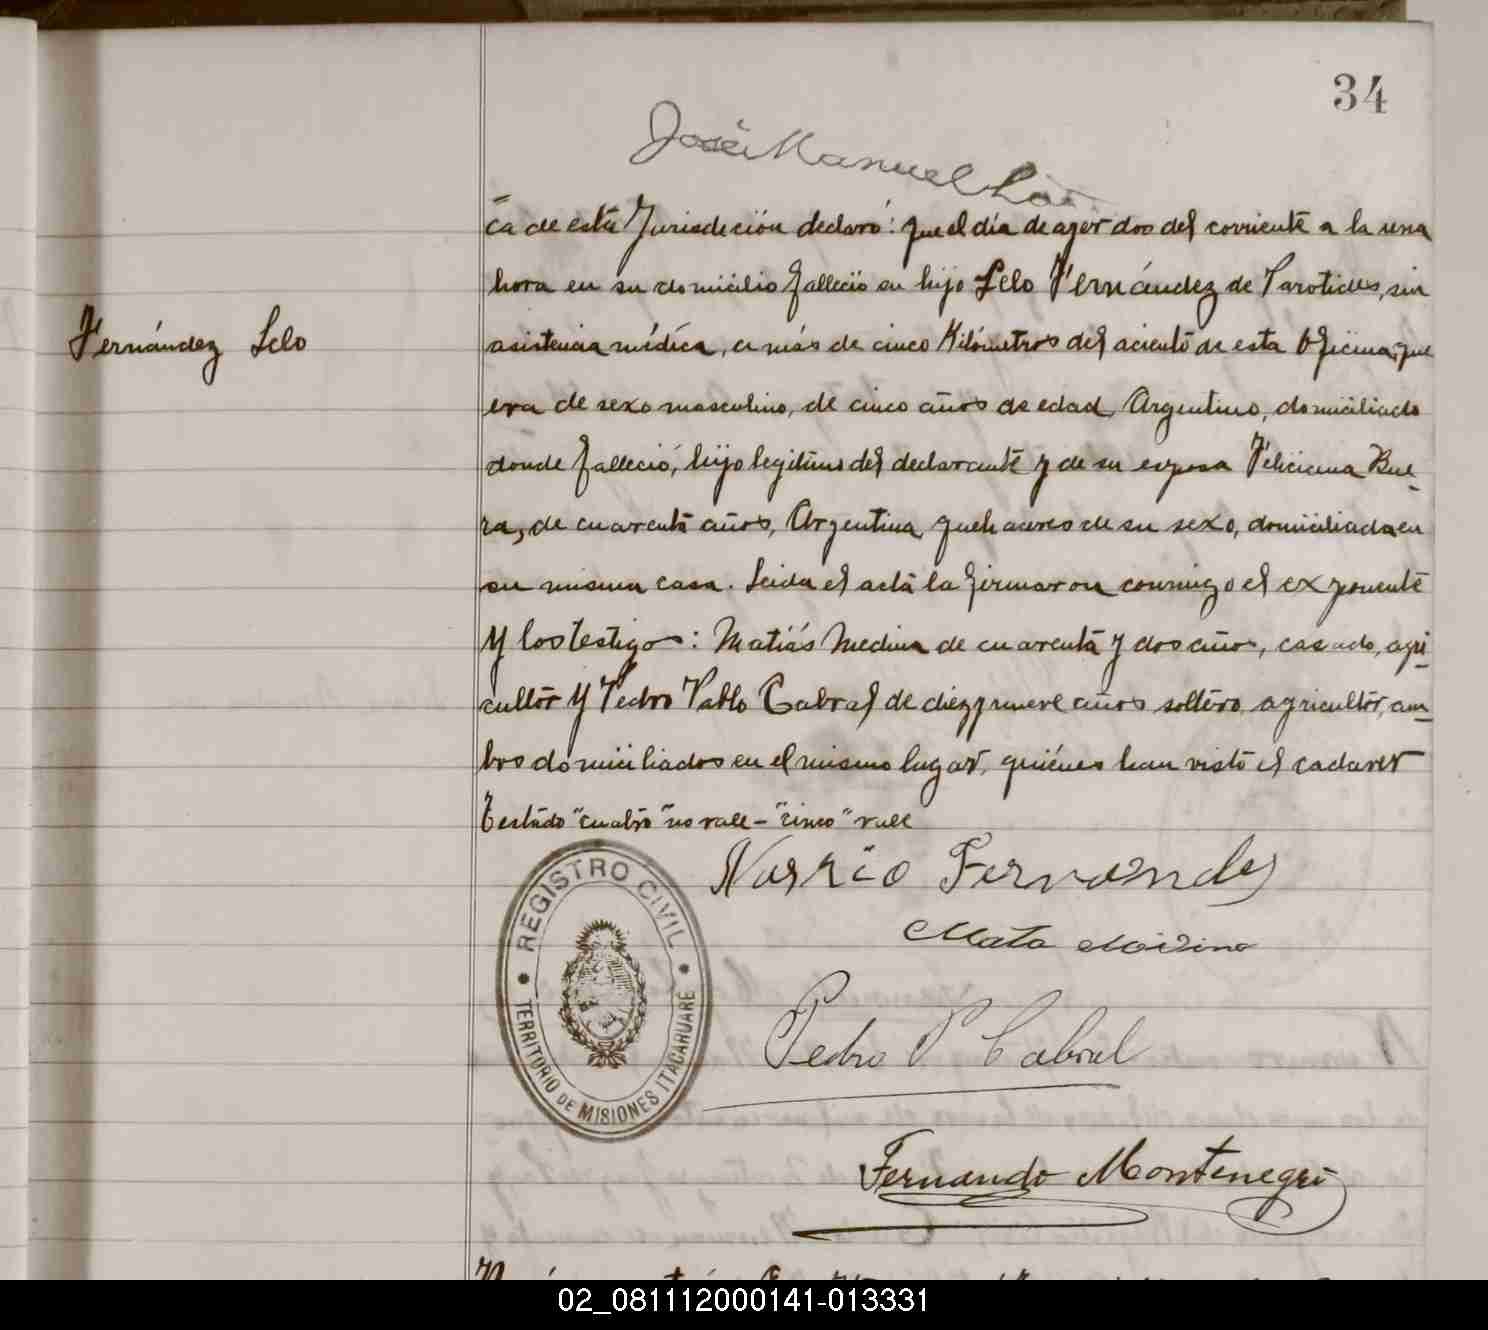 34
José Manuel
ca de esta Jurisdición declaró: que el día de ayer dos del corriente a la una
hora en su domicilio falleció su hijo Lelo Fernández de Parotides, sin
Fernández Lelo
asistencia médica, a más de cinco Kilómetros del aciento de esta Oficina; que
era de sexo masculino, de cinco años de edad, Argentino, domiciliado
donde falleció, hijo legitimo del declarante y de su esposa Feliciana Bue-
ra, de cuarenta años, Argentina, quehaceres de su sexo, domiciliada en
su misma casa. Leida el acta la firmaron conmigo el exponente
y los testigos: Matías Medina de cuarenta y dos años, casado, agri-
cultor y Pedro Pablo Cabral de diez y nueve años soltero, agricultor, am-
bos domiciliados en el mismo lugar, quiénes han visto el cadaver
Testado "cuatro" no vale - "cinco" vale
REGISTRO CIVIL
TERRITORIO DE MISIONES ITACARUARÉ
Fernandes
Mata
Pedro P Cabral
Fernando Montenegro
02_081112000141-013331